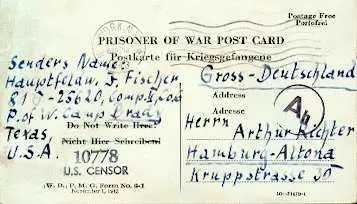 Postage Free
Portofrei
PRISONER OF WAR POST CARD
Postkarte für Kriegsgefangene
Senders Name:
Hauptfeldw. F. Fischer
81G-25620, Comp.
P. of W. Camp Brady
Do Not Write Here!
Texas
Nicht Hier Schreiben!
U.S.A.
10778
U.S. CENSOR
W. D., P. M. G. Form No. 6-1
November 1, 1942
Gross-Deutschland
Address
Adresse
Herrn Arthur Richter
Hamburg-Altona
Kruppstrasse 30